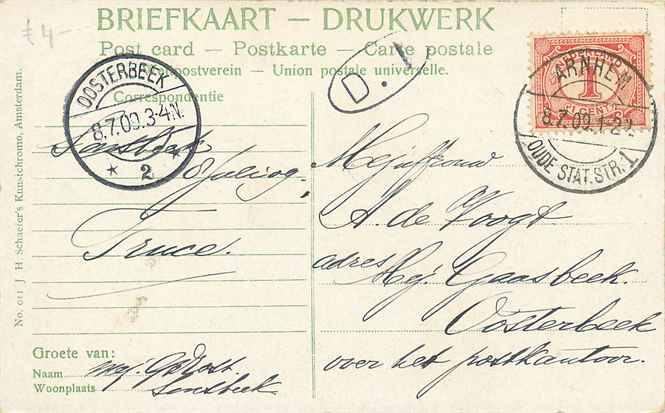 # 4-
BRIEFKAART — DRUKWERK
Post card — Postkarte — Carte postale
postverein — Union postale universelle.
Correspondentie
D. 1
OOSTERBEEK
8.7.09.3-4.N.
* 2 *
ARNHEM
8.7.09.1-2
OUDE STAT.STR. 1
1
Sonsbeek
8 Julij 09.
Truce.
Mejuffrouw
A. de Voogt
adres Mej. Gaasbeek.
Oosterbeek
over het postkantoor.
Groete van:
Naam mej.
Woonplaats Sonsbeek
No. 011 J. H. Schaefer's Kunstchromo, Amsterdam.